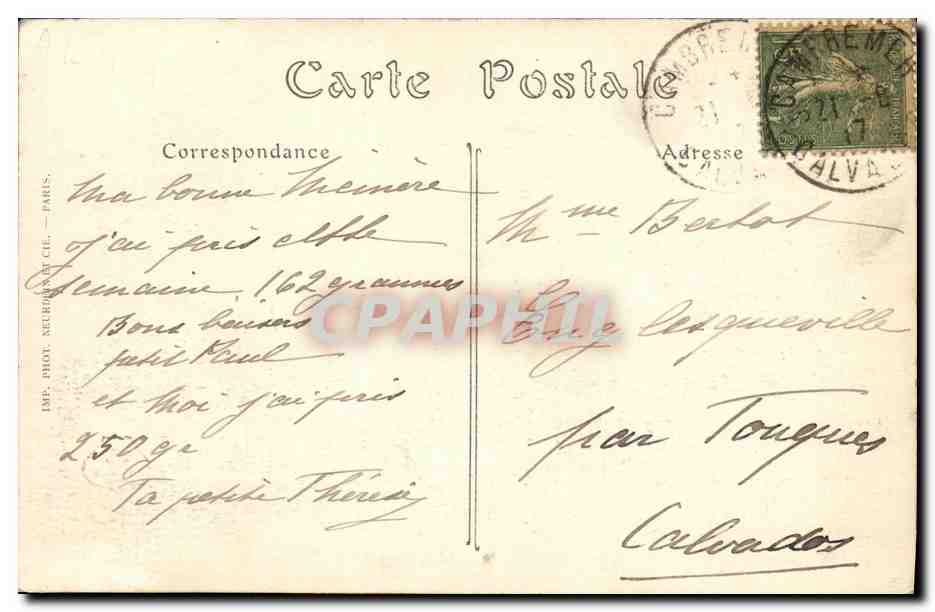 Carte Postale
CAMBREMER
21
CALVA
CAMBREMER
21 - 8
17
CALVA
Correspondance
Adresse
Ma bonne Mémère
j'ai pris cette
semaine 162 grammes
Bons baisers
petit Paul
et moi j'ai pris
250 gr
Ta petite Thérèse
Mme Bertot
Englesqueville
par Touques
Calvados
IMP. PHOT. NEURDEIN ET CIE. — PARIS.
CPAPHIL